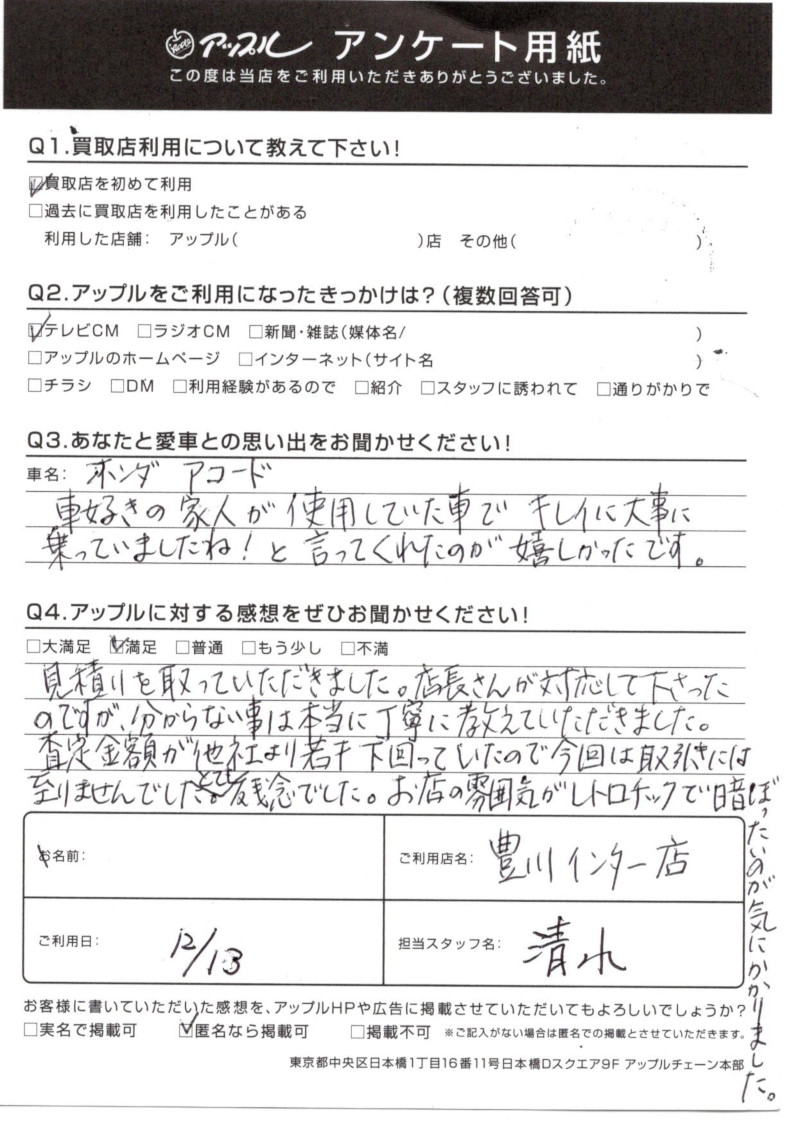 Apple アップル アンケート用紙
この度は当店をご利用いただきありがとうございました。
Q1.買取店利用について教えて下さい!
☑買取店を初めて利用
□過去に買取店を利用したことがある
利用した店舗: アップル( )店 その他( )
Q2.アップルをご利用になったきっかけは?(複数回答可)
☑テレビCM □ラジオCM □新聞・雑誌(媒体名/ )
□アップルのホームページ □インターネット(サイト名 )
□チラシ □DM □利用経験があるので □紹介 □スタッフに誘われて □通りがかりで
Q3.あなたと愛車との思い出をお聞かせください!
車名: ホンダ アコード
車好きの家人が使用していた車で キレイに大事に
乗っていましたね!と言ってくれたのが嬉しかったです。
Q4.アップルに対する感想をぜひお聞かせください!
□大満足 ☑満足 □普通 □もう少し □不満
見積りを取っていただきました。店長さんが対応して下さった
のですが、分からない事は本当に丁寧に教えていただきました。
査定金額が他社より若干下回っていたので今回は取引きには
至りませんでした。とても残念でした。お店の雰囲気がレトロチックで暗ぼ
ったいのが気にかかりました。
お名前:
ご利用店名: 豊川インター店
ご利用日: 12/13
担当スタッフ名: 清水
お客様に書いていただいた感想を、アップルHPや広告に掲載させていただいてもよろしいでしょうか?
□実名で掲載可 ☑匿名なら掲載可 □掲載不可 ※ご記入がない場合は匿名での掲載とさせていただきます。
東京都中央区日本橋1丁目16番11号日本橋Dスクエア9F アップルチェーン本部